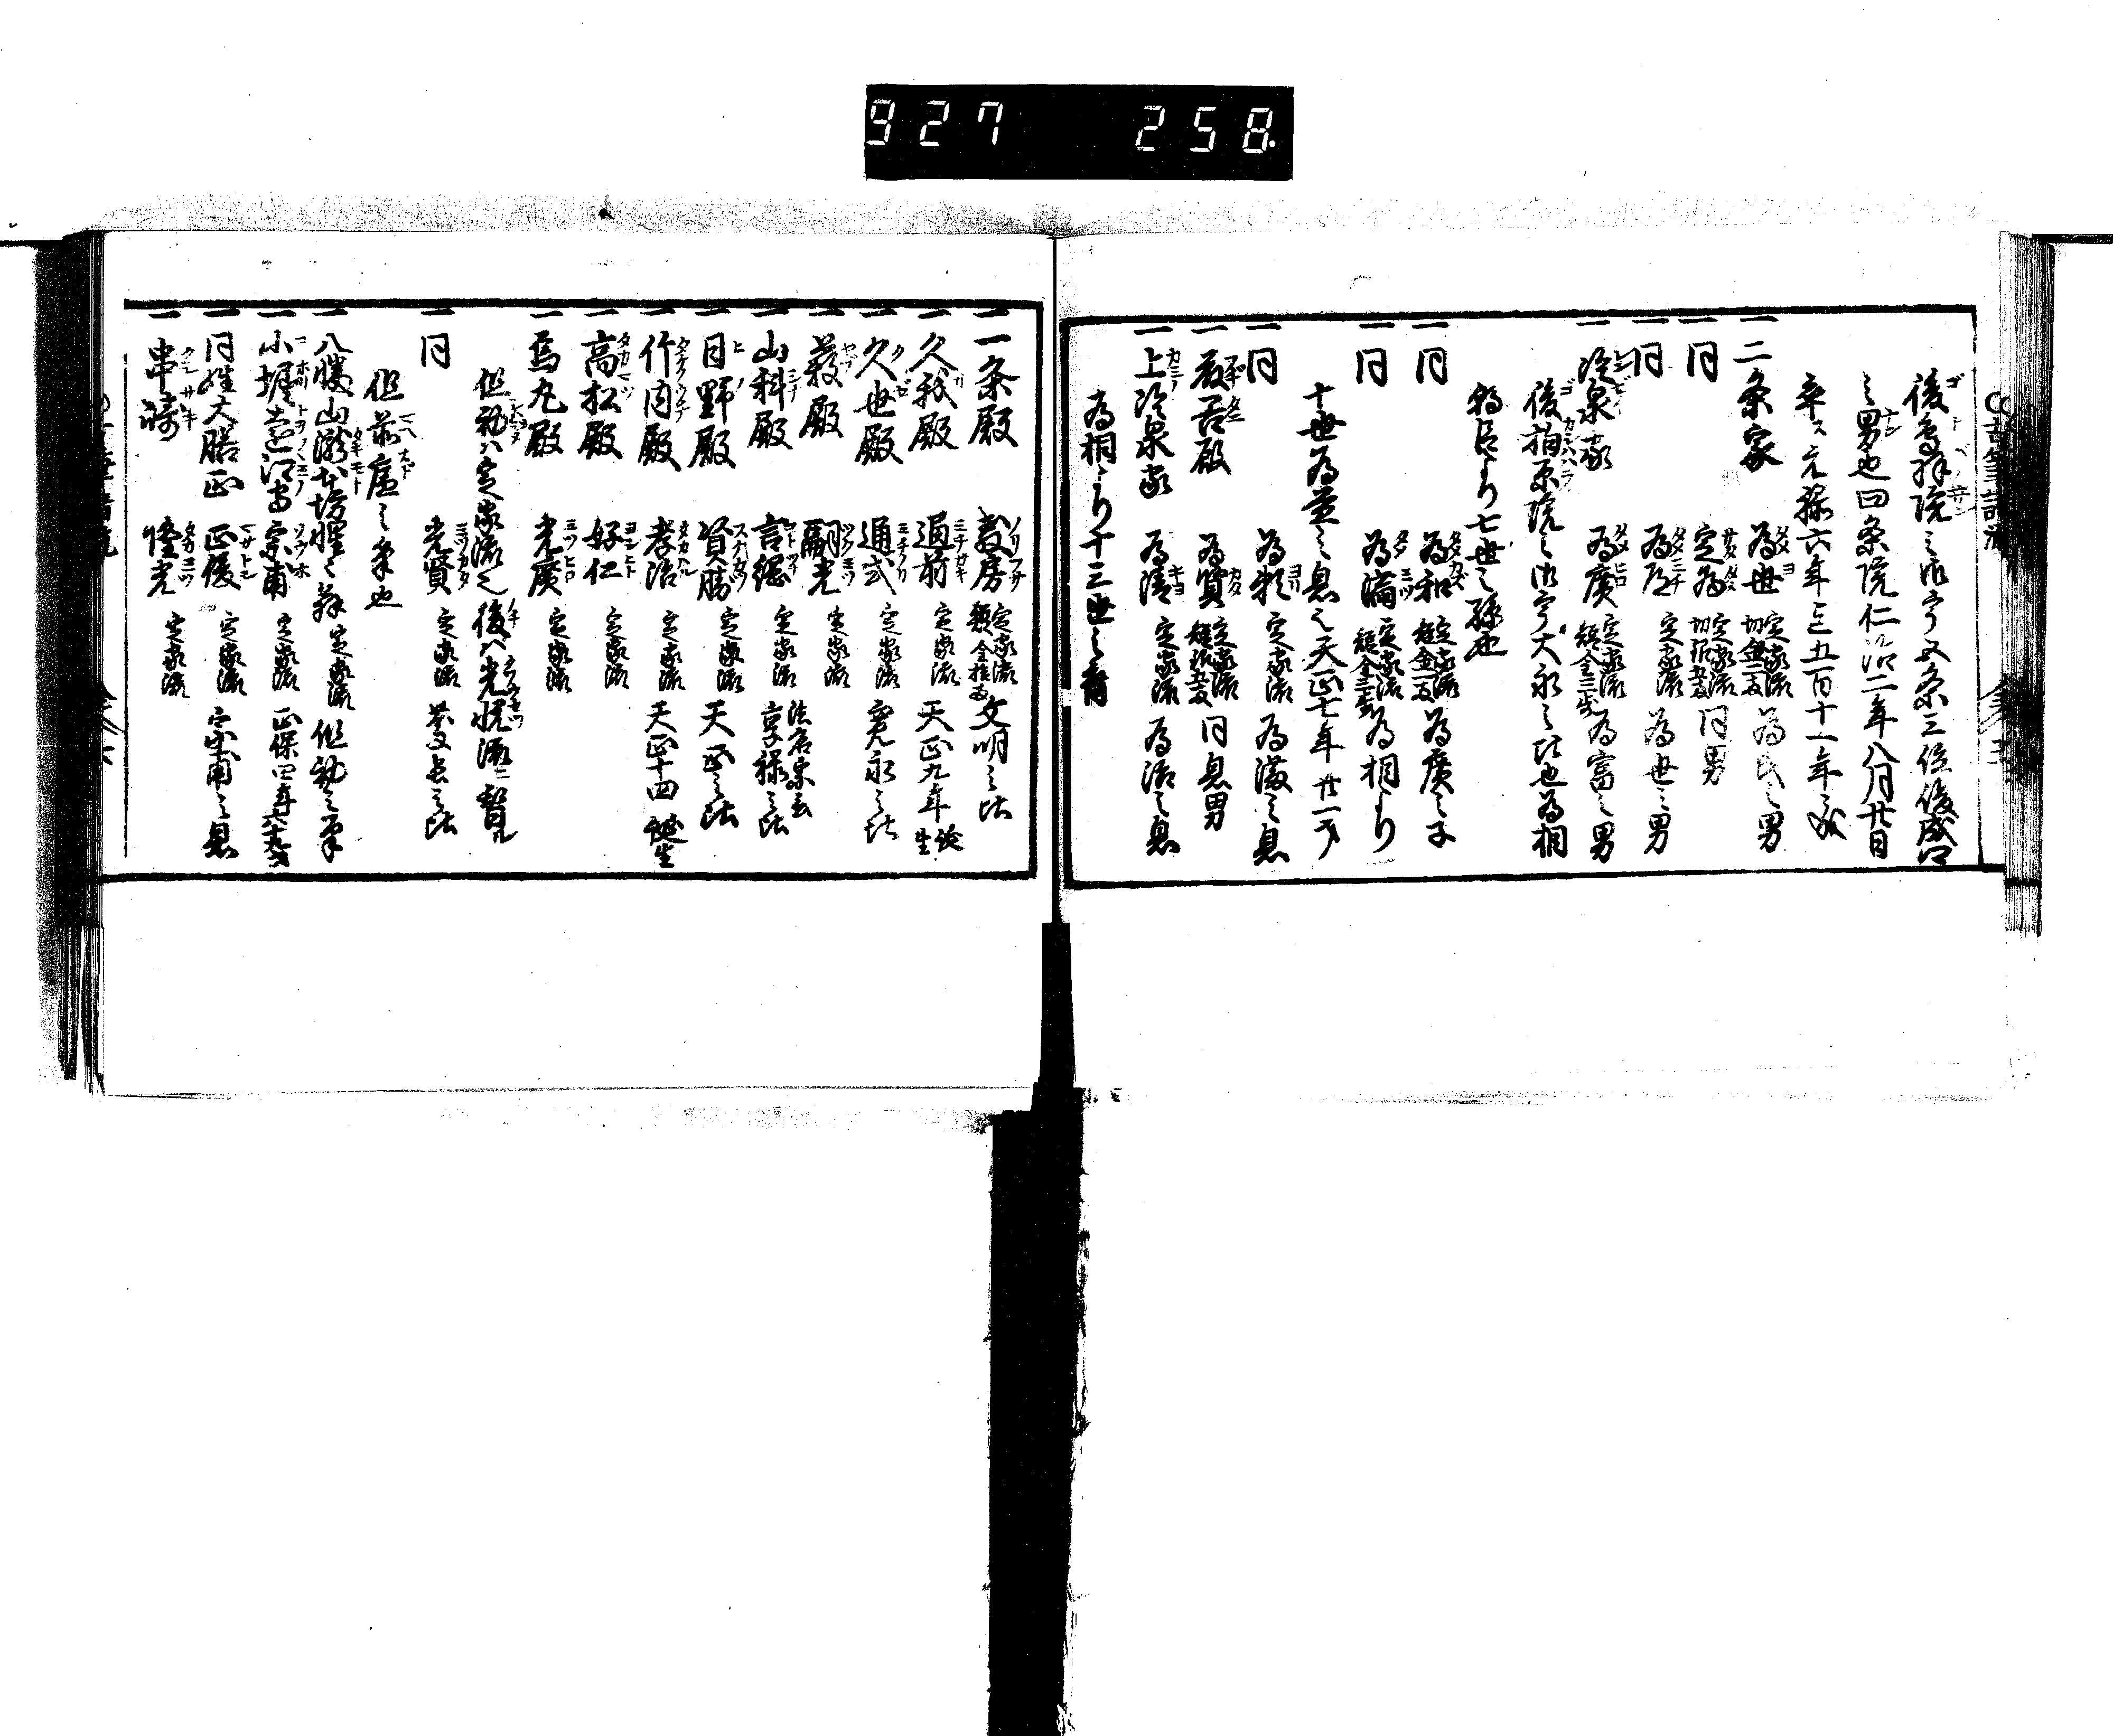 927 258
後鳥羽院之御宇五条三位俊成卿
之男也四条院仁治二年八月廿日
卒ス元禄六年迄五百十一年ニ成
一二条家 為世 定家流 切金一枚 為氏之男
一同 定為 定家流 切 同男
一同 為道 定家流 為世之男
一冷泉家 為廣 定家流 短金三歩 為富之男
後柏原院之御宇大永之比也為相
朝臣より七世之孫也
一同 為和 定家流 短金一枚 為廣之子
一同 為満 定家流 短金三歩 為相より
十世為益之息也天正七年廿一才
一同 為頼 定家流 為満之息
一 為賢 定家流 同息男
一上冷泉家 為清 定家流 為治之息
為相より十三世之裔
一一条殿 教房 定家流 文明之比
一久我殿 通前 定家流 天正九年誕生
一久世殿 通式 定家流 寛永之比
一薮殿 嗣光 定家流
一山科殿 言継 定家流 法名宗言 享禄之比
一日野殿 資勝 定家流 天正之比
一竹内殿 孝治 定家流 天正十四誕生
一高松殿 好仁 定家流
一烏丸殿 光廣 定家流
但初ハ定家流也後ハ光悦流ニ
一同 光賢 定家流 慶長之比
但前廉之筆也
一八幡山瀧本坊 定家流 但初之筆
一小堀遠江守 宗甫 定家流 正保四年六十九才
一同姓大膳正 正俊 定家流 宗甫之息
一串崎 隆光 定家流